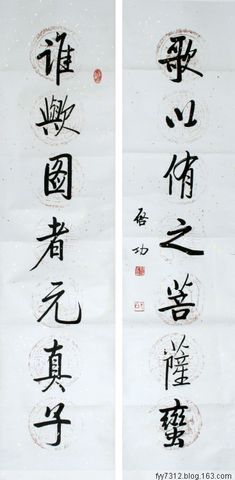 誰歟圖者元真子
歌以侑之菩薩蠻
啓功
fyy7312.blog.163.com